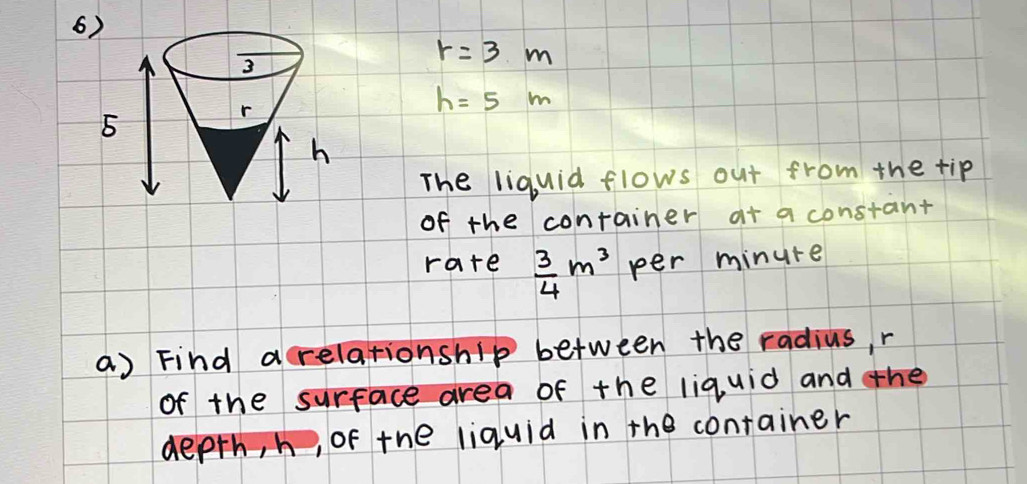 6)
3
r = 3 m
h = 5 m
r
5
h
The liquid flows out from the tip
of the container at a constant
rate 3/4 m³ per minute
a) Find a relationship between the radius, r
of the surface area of the liquid and the
depth, h, of the liquid in the container